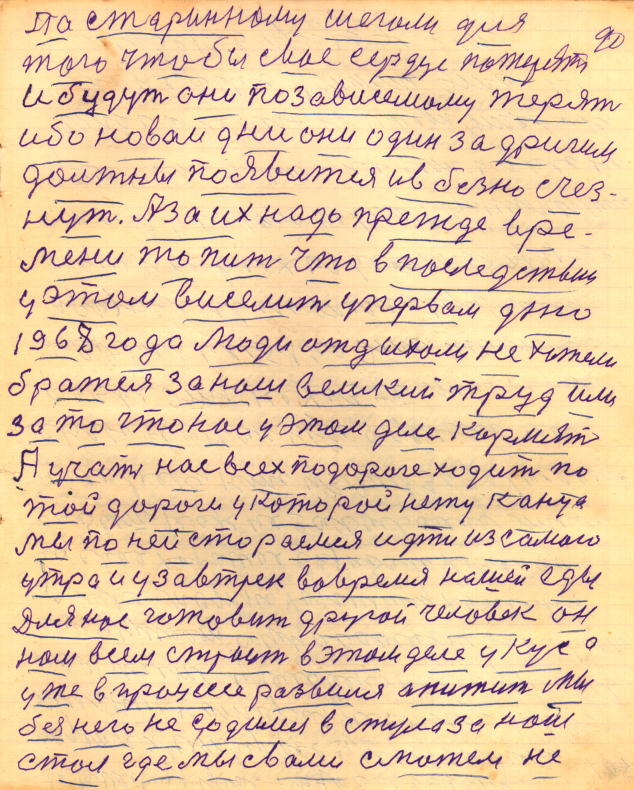 90
Па старинному шегали для
того чтобы свое сердце потерять
и будут они позависемому терят
ибо новаи дни они один за другим
должны появится и в безно счез-
нут. А за их надо прежде вре-
мени то пит что в последствии
у этом виселит у первам дню
1968 года люди отдыхали не хотели
братся за наш великий труд или
за то что нас у этом деле кормят
А учат нас всех подороге ходит по
той дороги у которой нету канца
мы по ней стораемся идти из самого
утра и у завтрек вовремя нашей еды
Для нас готовит другой человек он
нам всем строит в этом деле у куса
уже в процесе развился апитит мы
без него не садимся в стула за наш
стол где мы свами сможем не